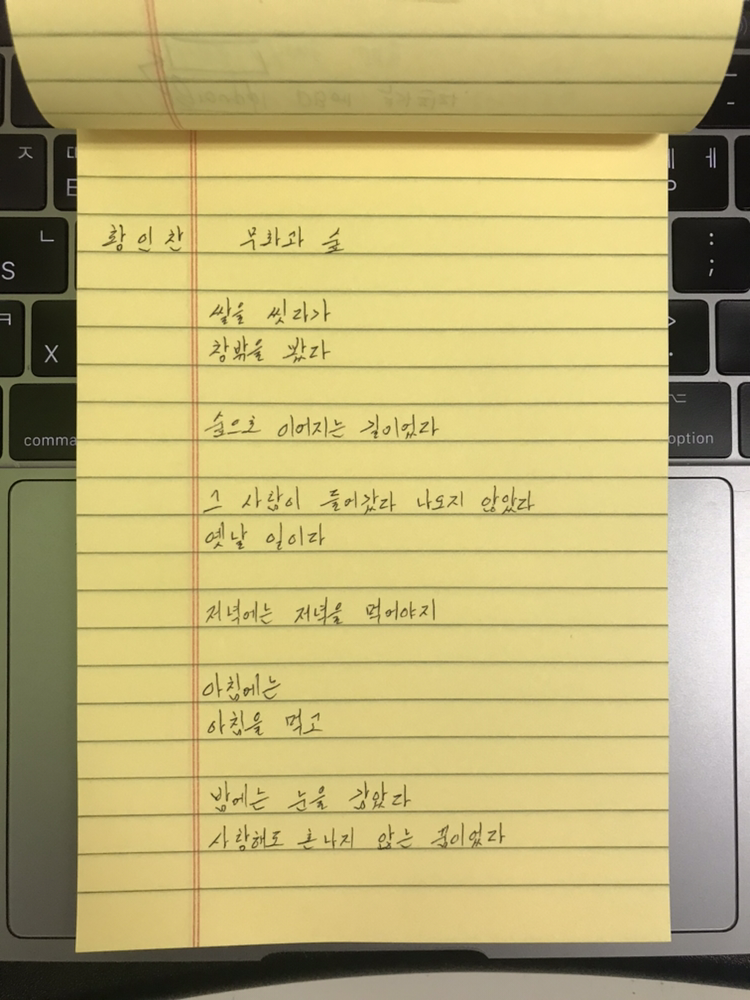 황인찬 무화과 숲
쌀을 씻다가
창밖을 봤다
숲으로 이어지는 길이었다
그 사람이 들어갔다 나오지 않았다
옛날 일이다
저녁에는 저녁을 먹어야지
아침에는
아침을 먹고
밤에는 눈을 감았다
사랑해도 혼나지 않는 꿈이었다
ㅈ
E
P
ㅔ
ㄴ
S
:
;
ㅋ
X
>
.
comma
option